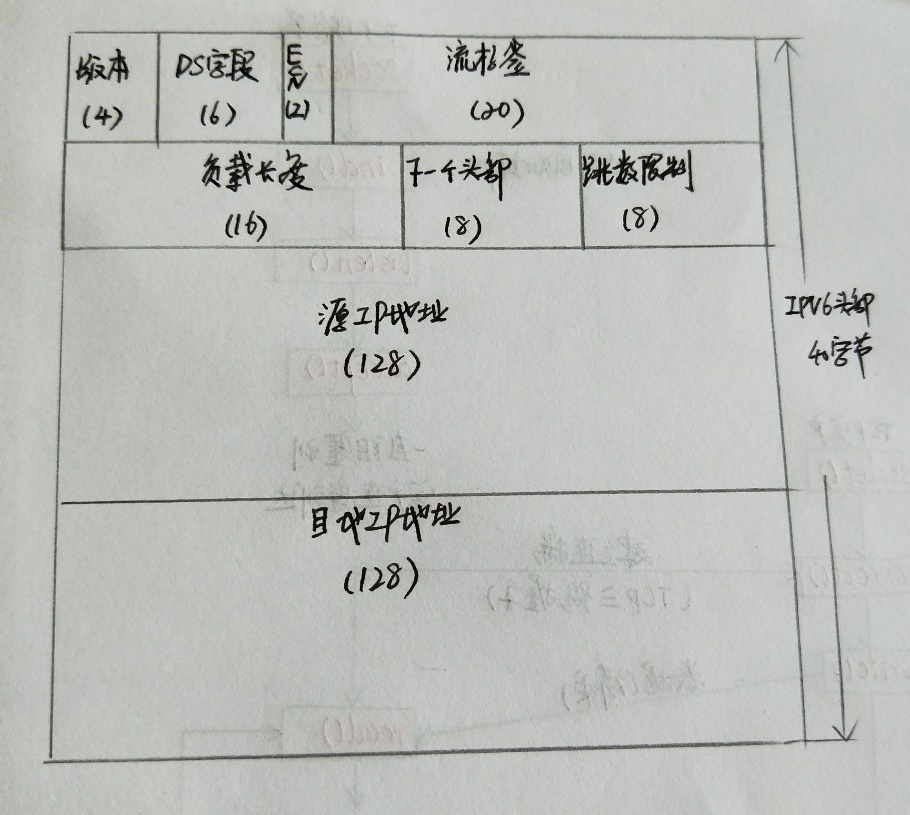 版本
(4)
DS字段
(6)
ECN
(2)
流标签
(20)
负载长度
(16)
下一个头部
(8)
跳数限制
(8)
源IP地址
(128)
目地IP地址
(128)
IPV6头部
40字节